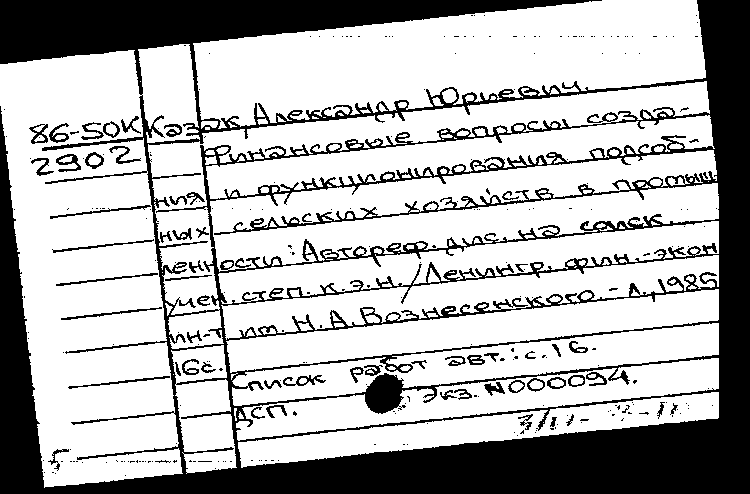 86-50К Казак, Александр Юрьевич.
2902 Финансовые вопросы созда-
ния и функционирования подсоб-
ных сельских хозяйств в промыш
ленности: Автореф. дис. на соиск.
учен. степ. к.э.н. / Ленингр. фин.-экон
ин-т им. Н.А. Вознесенского. - Л., 1985
16с.
Список работ авт.: с. 16.
ДСП. Экз. N000094.